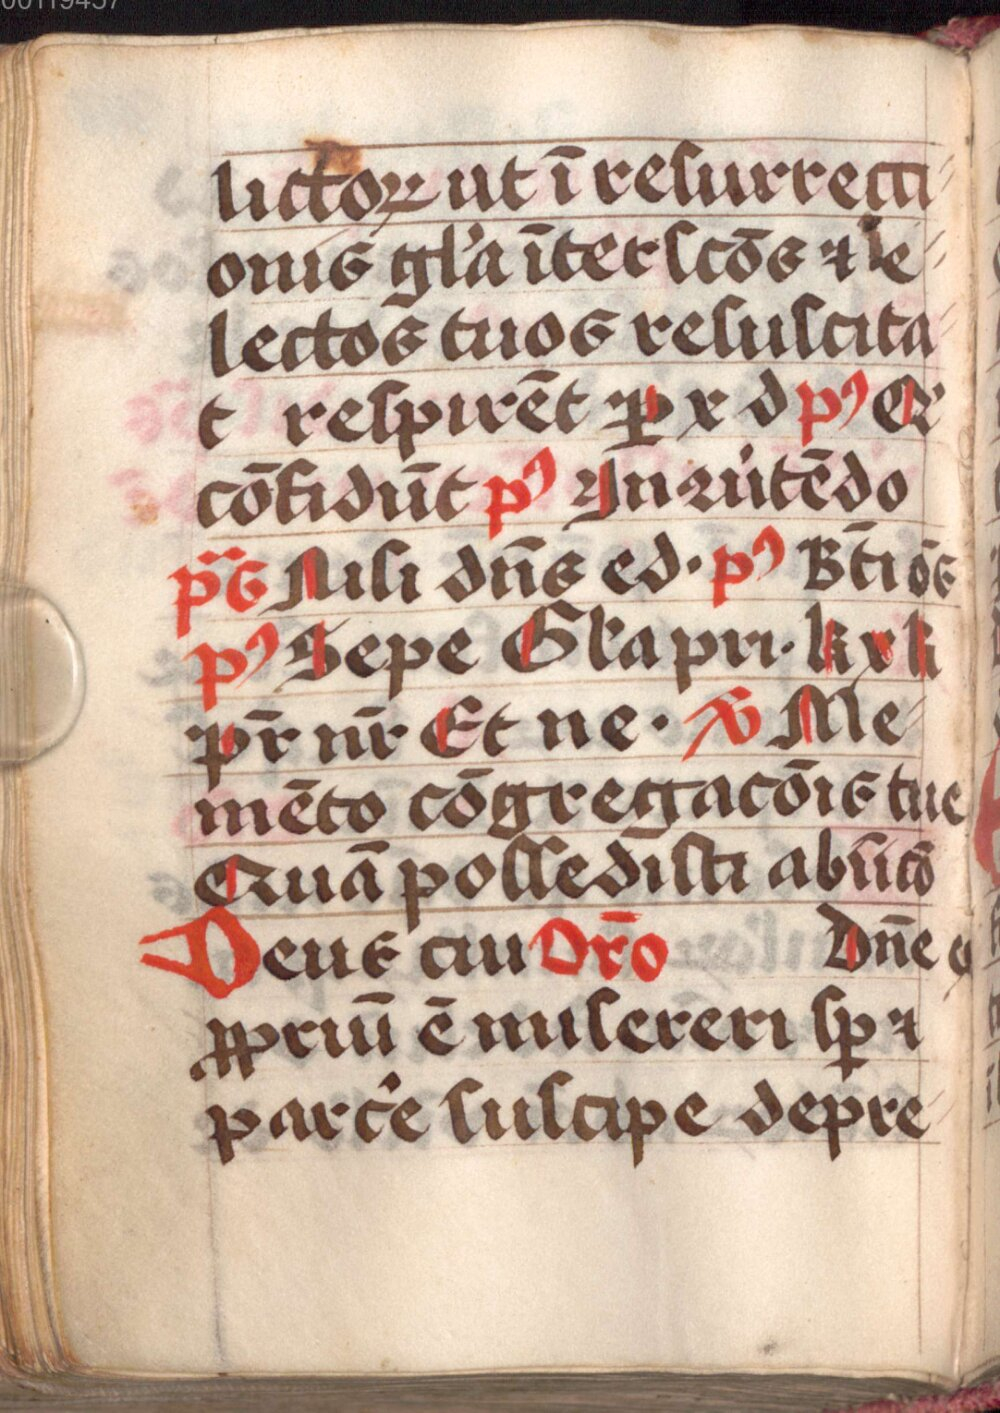 lictoꝝ ut ī resurrecti
onis gl'a īter scōs ⁊ e
lectos tuos resuscita
t respirēt ꝑ x d pꝰ Q̄
cōfidūt pꝰ In ꝯūtēdo
pͥs Nisi dn̄s ed· pꝰ Bt̄i ōs
pꝰ Sepe Gl'a pri· k x k
pr̄ nr̄ Et ne · ℣ Me
mēto cōgregacōis tue
Quā possedisti ab īicō
Deus cui Or̄o Dn̄e c
ꝓpriū ē misereri sꝑ ⁊
parc'e suscipe depre